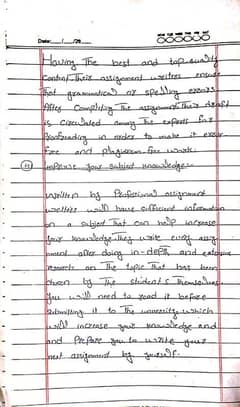 Date: __/__/20__
Having The best and top-quality
Control Their assignment writers ensure
That grammatical or spelling errors
After Completing The assignment Their draft
is Circulated among The experts for
Proofreading in order to make it error
free and plagiarism free work.
improve your subject knowledge:-
written by Professional assignment
writers will have sufficient information
on a subject That can help increase
your knowledge They write every assig
nment after doing in-depth and extensive
research on The topic That has been
chosen by The student's Themselves
You will need to read it before
submitting it to The university which
will increase your knowledge and
and Prepare you to write your
next assignment by yourself.